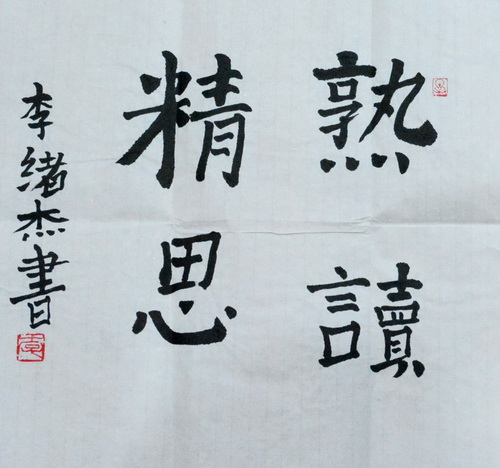 熟讀
精思
李緒杰書